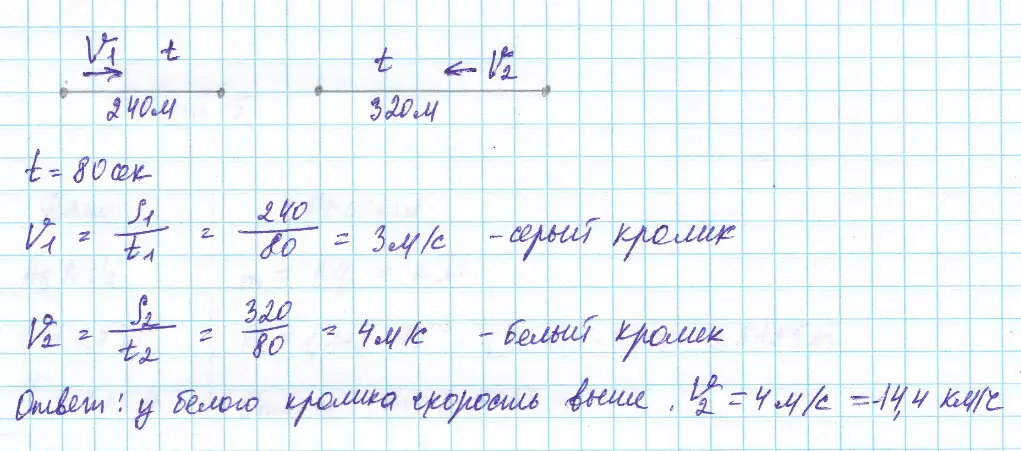 V1 t t V2
240м 320м
t = 80 сек
V1 = S1/t1 = 240/80 = 3 м/с - серый кролик
V2 = S2/t2 = 320/80 = 4 м/с - белый кролик
Ответ: у белого кролика скорость выше. V2 = 4 м/с = 14,4 км/ч